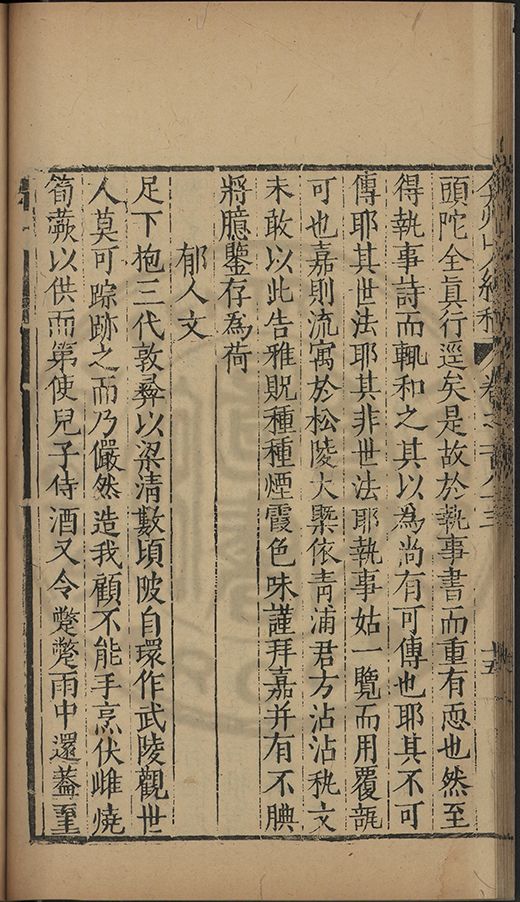 弇州山人續稿 卷之一百八十三 十五
頭陀全眞行逕矣是故於執事書而重有恧也然至
得執事詩而輒和之其以為尚有可傳也耶其不可
傳耶其世法耶其非世法耶執事姑一覽而用覆瓿
可也嘉則流寓於松陵大槩依靑浦君方沾沾秇文
未敢以此告雅貺種種煙霞色味謹拜嘉并有不腆
將臆鑒存為荷
郁人文
足下抱三代敦彝以梁清數頃陂自環作武陵觀世
人莫可踪跡之而乃儼然造我顧不能手烹伏雌燒
筍蕨以供而第使兒子侍酒又令蹩蹩雨中還葢至